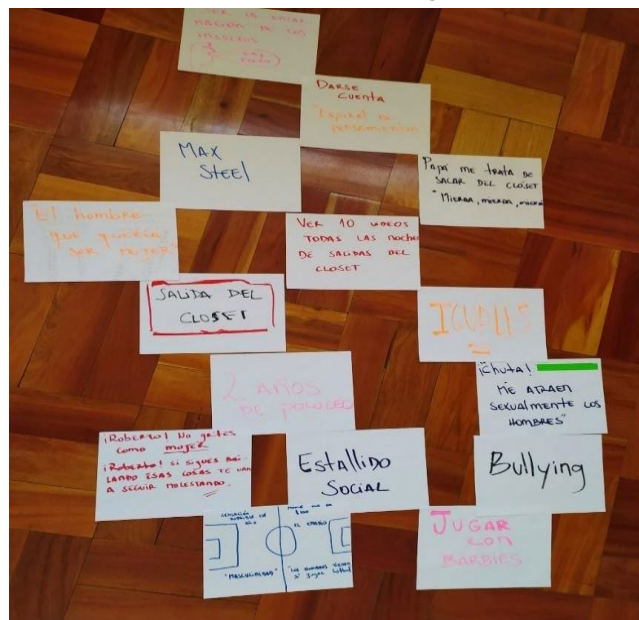 DE LOS
INSECTOS
DARSE
CUENTA
Espiral de
pensamientos
MAX
STEEL
PAPÁ ME TRATA DE
SACAR DEL CLOSET
"MIERDA, MIERDA, MIERDA
El hombre
que quería
ser mujer
VER 10 VIDEOS
TODAS LAS NOCHES
DE SALIDAS DEL
CLOSET
SALIDA DEL
CLOSET
IGUALES
2 AÑOS
DE POLOLEO
¡Chuta!
ME ATRAEN
SEXUALMENTE LOS
HOMBRES"
¡Roberto! No grites
como mujer
¡Roberto! si sigues BAI-
LANDO ESAS COSAS TE VAN
A SEGUIR MOLESTANDO.
Estallido
Social
Bullying
EL CAMARÍN
"MASCULINIDAD"
JUGAR
CON
BARBIES